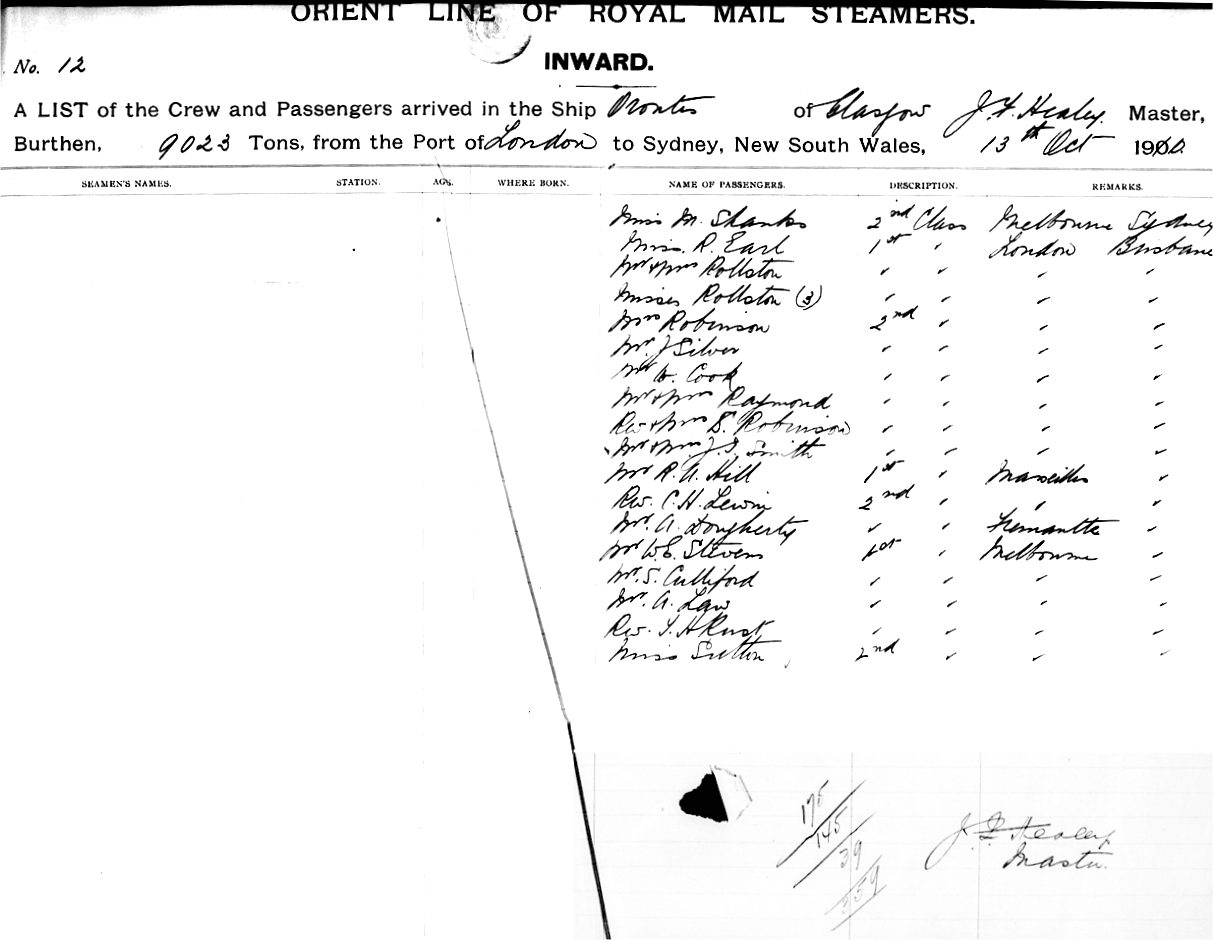 ORIENT LINE OF ROYAL MAIL STEAMERS.
INWARD.
No. 12
A LIST of the Crew and Passengers arrived in the Ship Orontes of Glasgow J.F. Healey. Master,
Burthen, 9023 Tons, from the Port of London to Sydney, New South Wales, 13th Oct 19
SEAMEN'S NAMES. STATION. AGE. WHERE BORN. NAME OF PASSENGERS. DESCRIPTION. REMARKS.
Miss M. Shanks 2nd Class Melbourne Sydney
Miss. R. Earl 1st " London Brisbane
Mr & Mrs Rollston " " " "
Misses Rollston (3) " " " "
Mrs Robinson 2nd " " "
Mr. J Silver " " " "
Mr W. Cook " " " "
Mr & Mrs Raymond " " " "
Rev & Mrs S. Robinson " " " "
Mr & Mrs J.S. Smith " " " "
Mr R.A. Hill 1st " Marseilles "
Rev. C.H. Lewin 2nd " " "
Mr. A. Dougherty " " Fremantle "
Mr W.E. Stevens 1st " Melbourne "
Mr. S. Culliford " " " "
Mr. A. Law " " " "
Rev. S. H Rust " " " "
Miss Sutton 2nd " " "
175
145
39
359
J F Healey
Master.